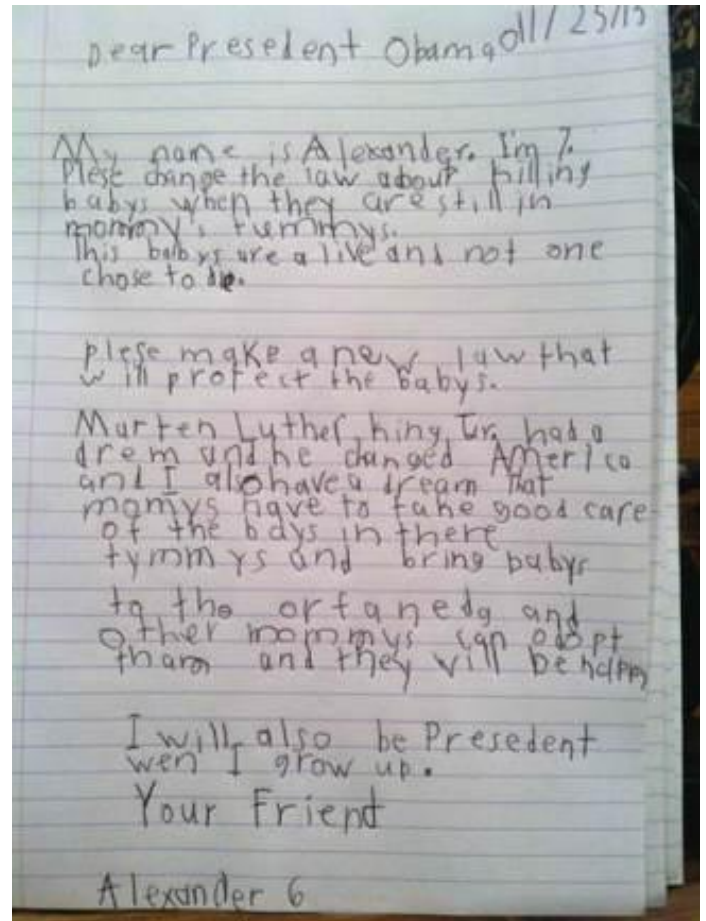 Dear Presedent Obama 01/25/15
My name is Alexander. I'm 7.
Plese change the law about killing
babys when they are still in
mommy's tummys.
This babys are alive and not one
chose to die.
plese make a new law that
will protect the babys.
Marten Luther king Jr. had a
drem and he changed America
and I also have a dream that
momys have to take good care
of the bays in there
tymmys and bring babys
to the orfaneda and
other mommys can adopt
tham and they will be happy
I will also be Presedent
wen I grow up.
Your Friend
Alexander 6